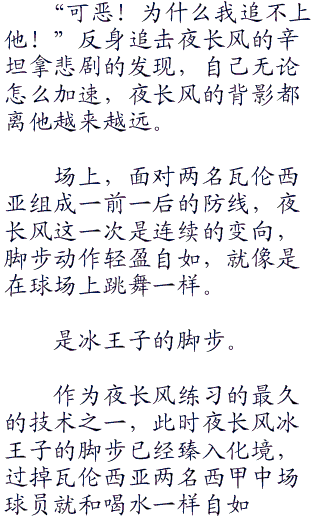 “可恶！为什么我追不上
他！”反身追击夜长风的辛
坦拿悲剧的发现，自己无论
怎么加速，夜长风的背影都
离他越来越远。
场上，面对两名瓦伦西
亚组成一前一后的防线，夜
长风这一次是连续的变向，
脚步动作轻盈自如，就像是
在球场上跳舞一样。
是冰王子的脚步。
作为夜长风练习的最久
的技术之一，此时夜长风冰
王子的脚步已经臻入化境，
过掉瓦伦西亚两名西甲中场
球员就和喝水一样自如